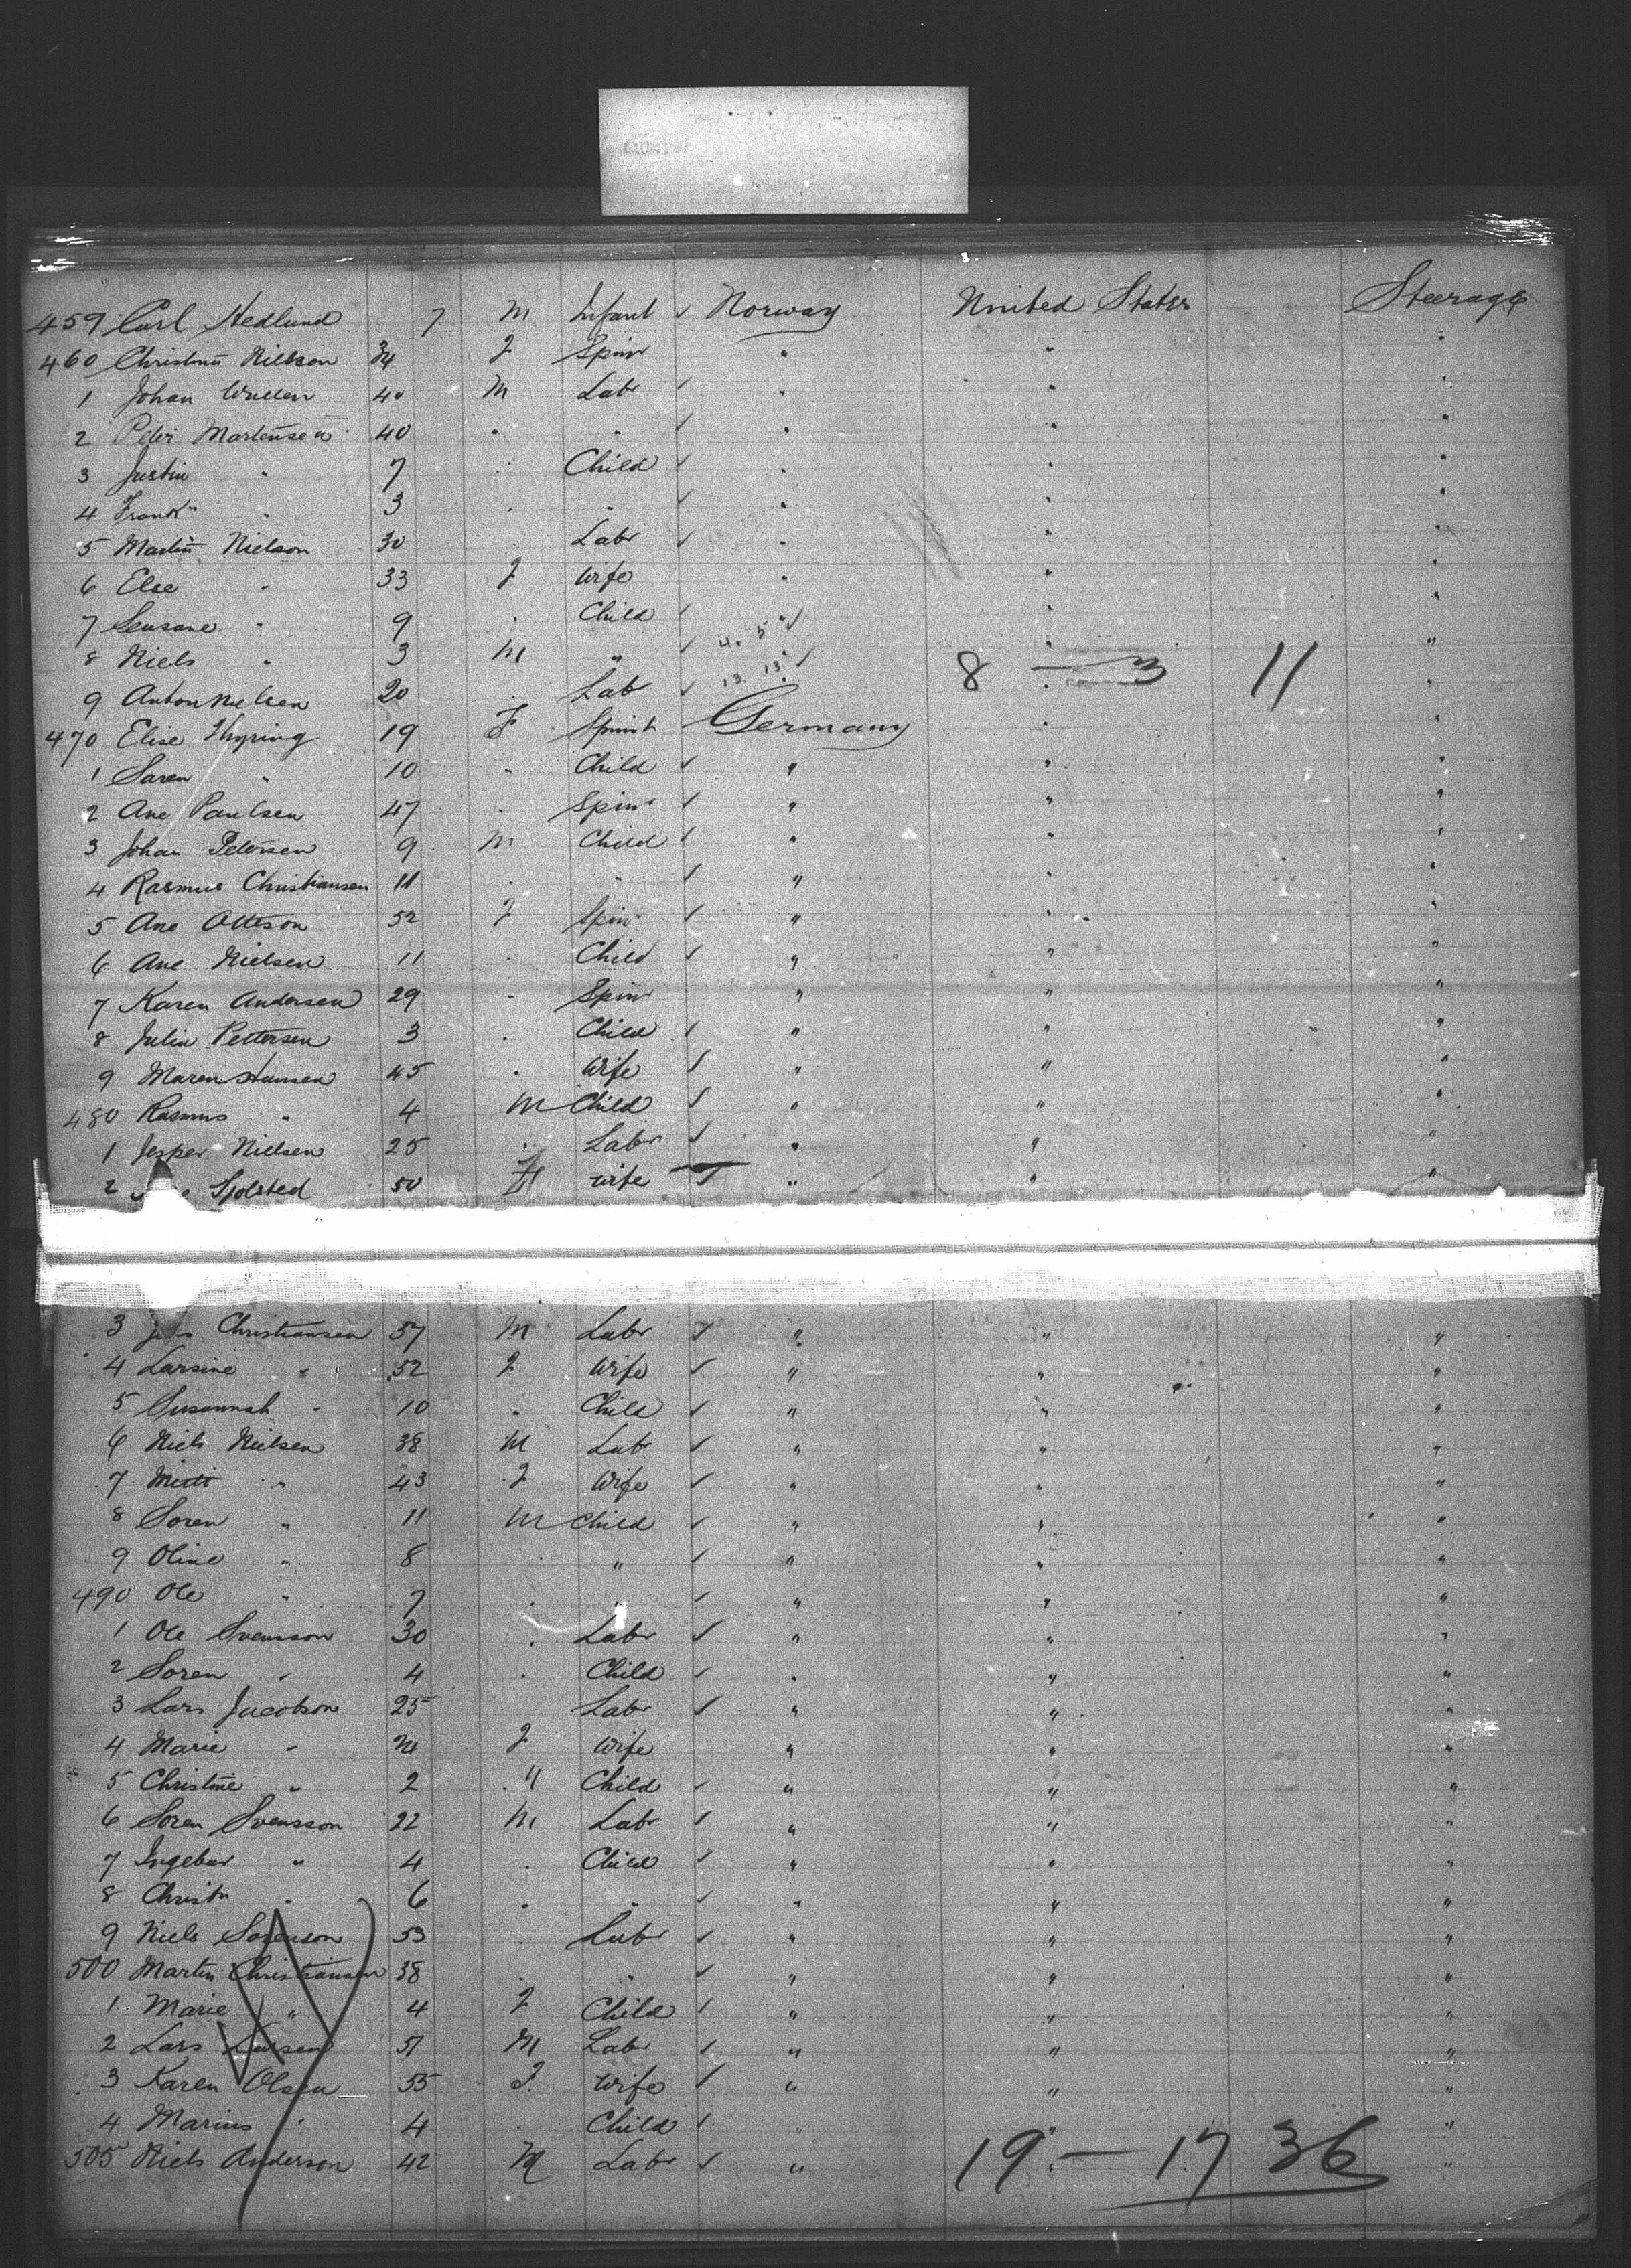 459 Carl Hedlund 7 M Infant ✓ Norway United States Steerage
460 Christin Nielson 34 F Spin " " "
1 Johan 40 M Labr ✓ " " "
2 Peter Martensen 40 " " ✓ " " "
3 Justin " 7 " Child ✓ " " "
4 Frank " 3 " " ✓ " " "
5 Martin Nielson 30 Labr ✓ " " "
6 Else " 33 F Wife " " "
7 " 9 " Child ✓ " " "
8 Niels " 3 M " ✓ " " "
9 Anton Nielsen 20 " Lab ✓ " 8 — 3 11 "
470 Elise Thyring 19 F Spinst Germany " "
1 Saren " 10 " Child ✓ " " "
2 Ane Paulsen 47 " Spin ✓ " " "
3 Johan Petersen 9 M Child ✓ " " "
4 Rasmus Christiansen 11 " " ✓ " " "
5 Ane Otteson 52 F Spin ✓ " " "
6 Ane Nielsen 11 " Child ✓ " " "
7 Karen Andersen 29 " Spin " " "
8 Julin Pettersen 3 " Child ✓ " " "
9 Maren Hansen 45 " Wife ✓ " " "
480 Rasmus " 4 M Child ✓ " " "
1 Jesper Nielsen 25 " Labr ✓ " " "
2 Sjolsted 50 F wife " " "
3 Christiansen 57 M Labr ✓ " " "
4 Larsine " 52 F Wife ✓ " " "
5 Susannah " 10 " Child ✓ " " "
6 Niels Nielsen 38 M Lab ✓ " " "
7 Mitti " 43 F Wife ✓ " " "
8 Soren " 11 M Child ✓ " " "
9 Oline " 8 " " ✓ " " "
490 Ole " 7 " " ✓ " " "
1 Ole Svensson 30 " Labr ✓ " " "
2 Soren " 4 " Child ✓ " " "
3 Lars Jacobson 25 Labr ✓ " " "
4 Marie " 24 F Wife " " "
5 Christine " 2 " Child ✓ " " "
6 Soren Svensson 22 M Labr ✓ " " "
7 Ingebar " 4 " Child ✓ " " "
8 Christn " 6 " " ✓ " " "
9 Niels Sorenson 53 " Labr ✓ " " "
500 Martin Christiansen 38 " " ✓ " " "
1 Marie " 4 F Child ✓ " " "
2 Lars Larsen 51 M Labr ✓ " " "
3 Karen Olsen 55 F Wife ✓ " " "
4 Marius " 4 " Child ✓ " " "
505 Niels Anderson 42 M Labr ✓ " 19 — 17 36 "